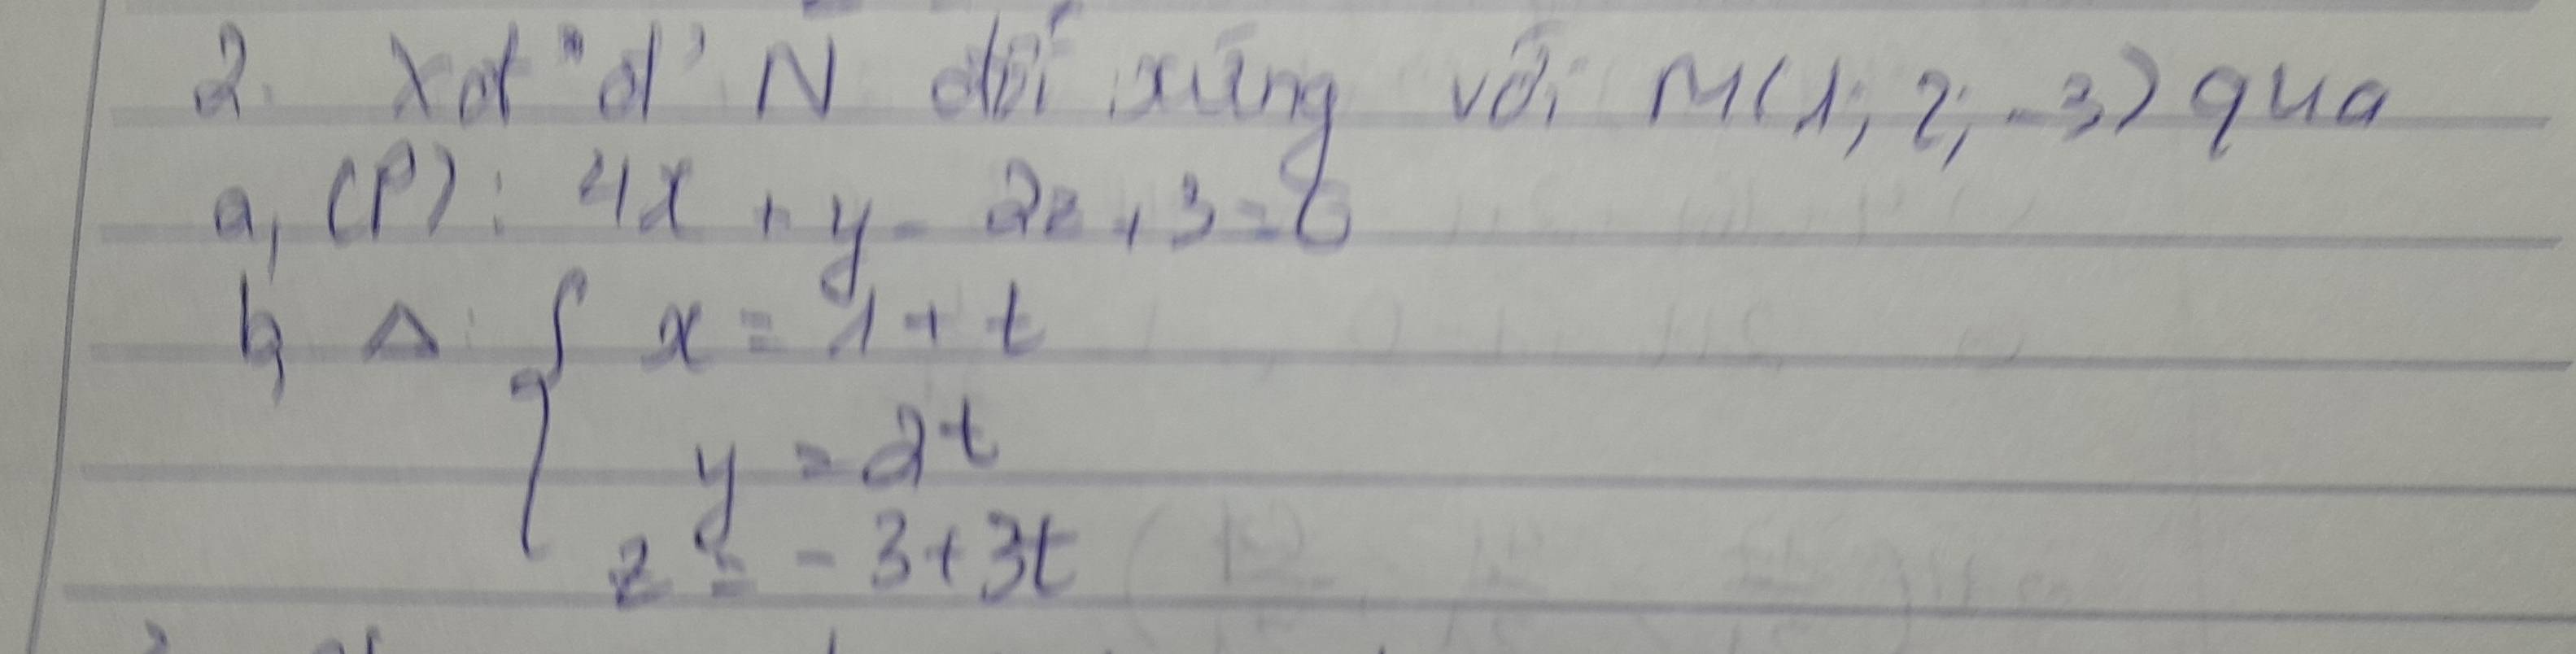 2. Xđ "đ' N đối xứng với M(1; 2; -3) qua
a, (P): 4x + y - 2z + 3 = 0
b, Δ: { x = 1 + t
y = 2t
z = - 3 + 3t